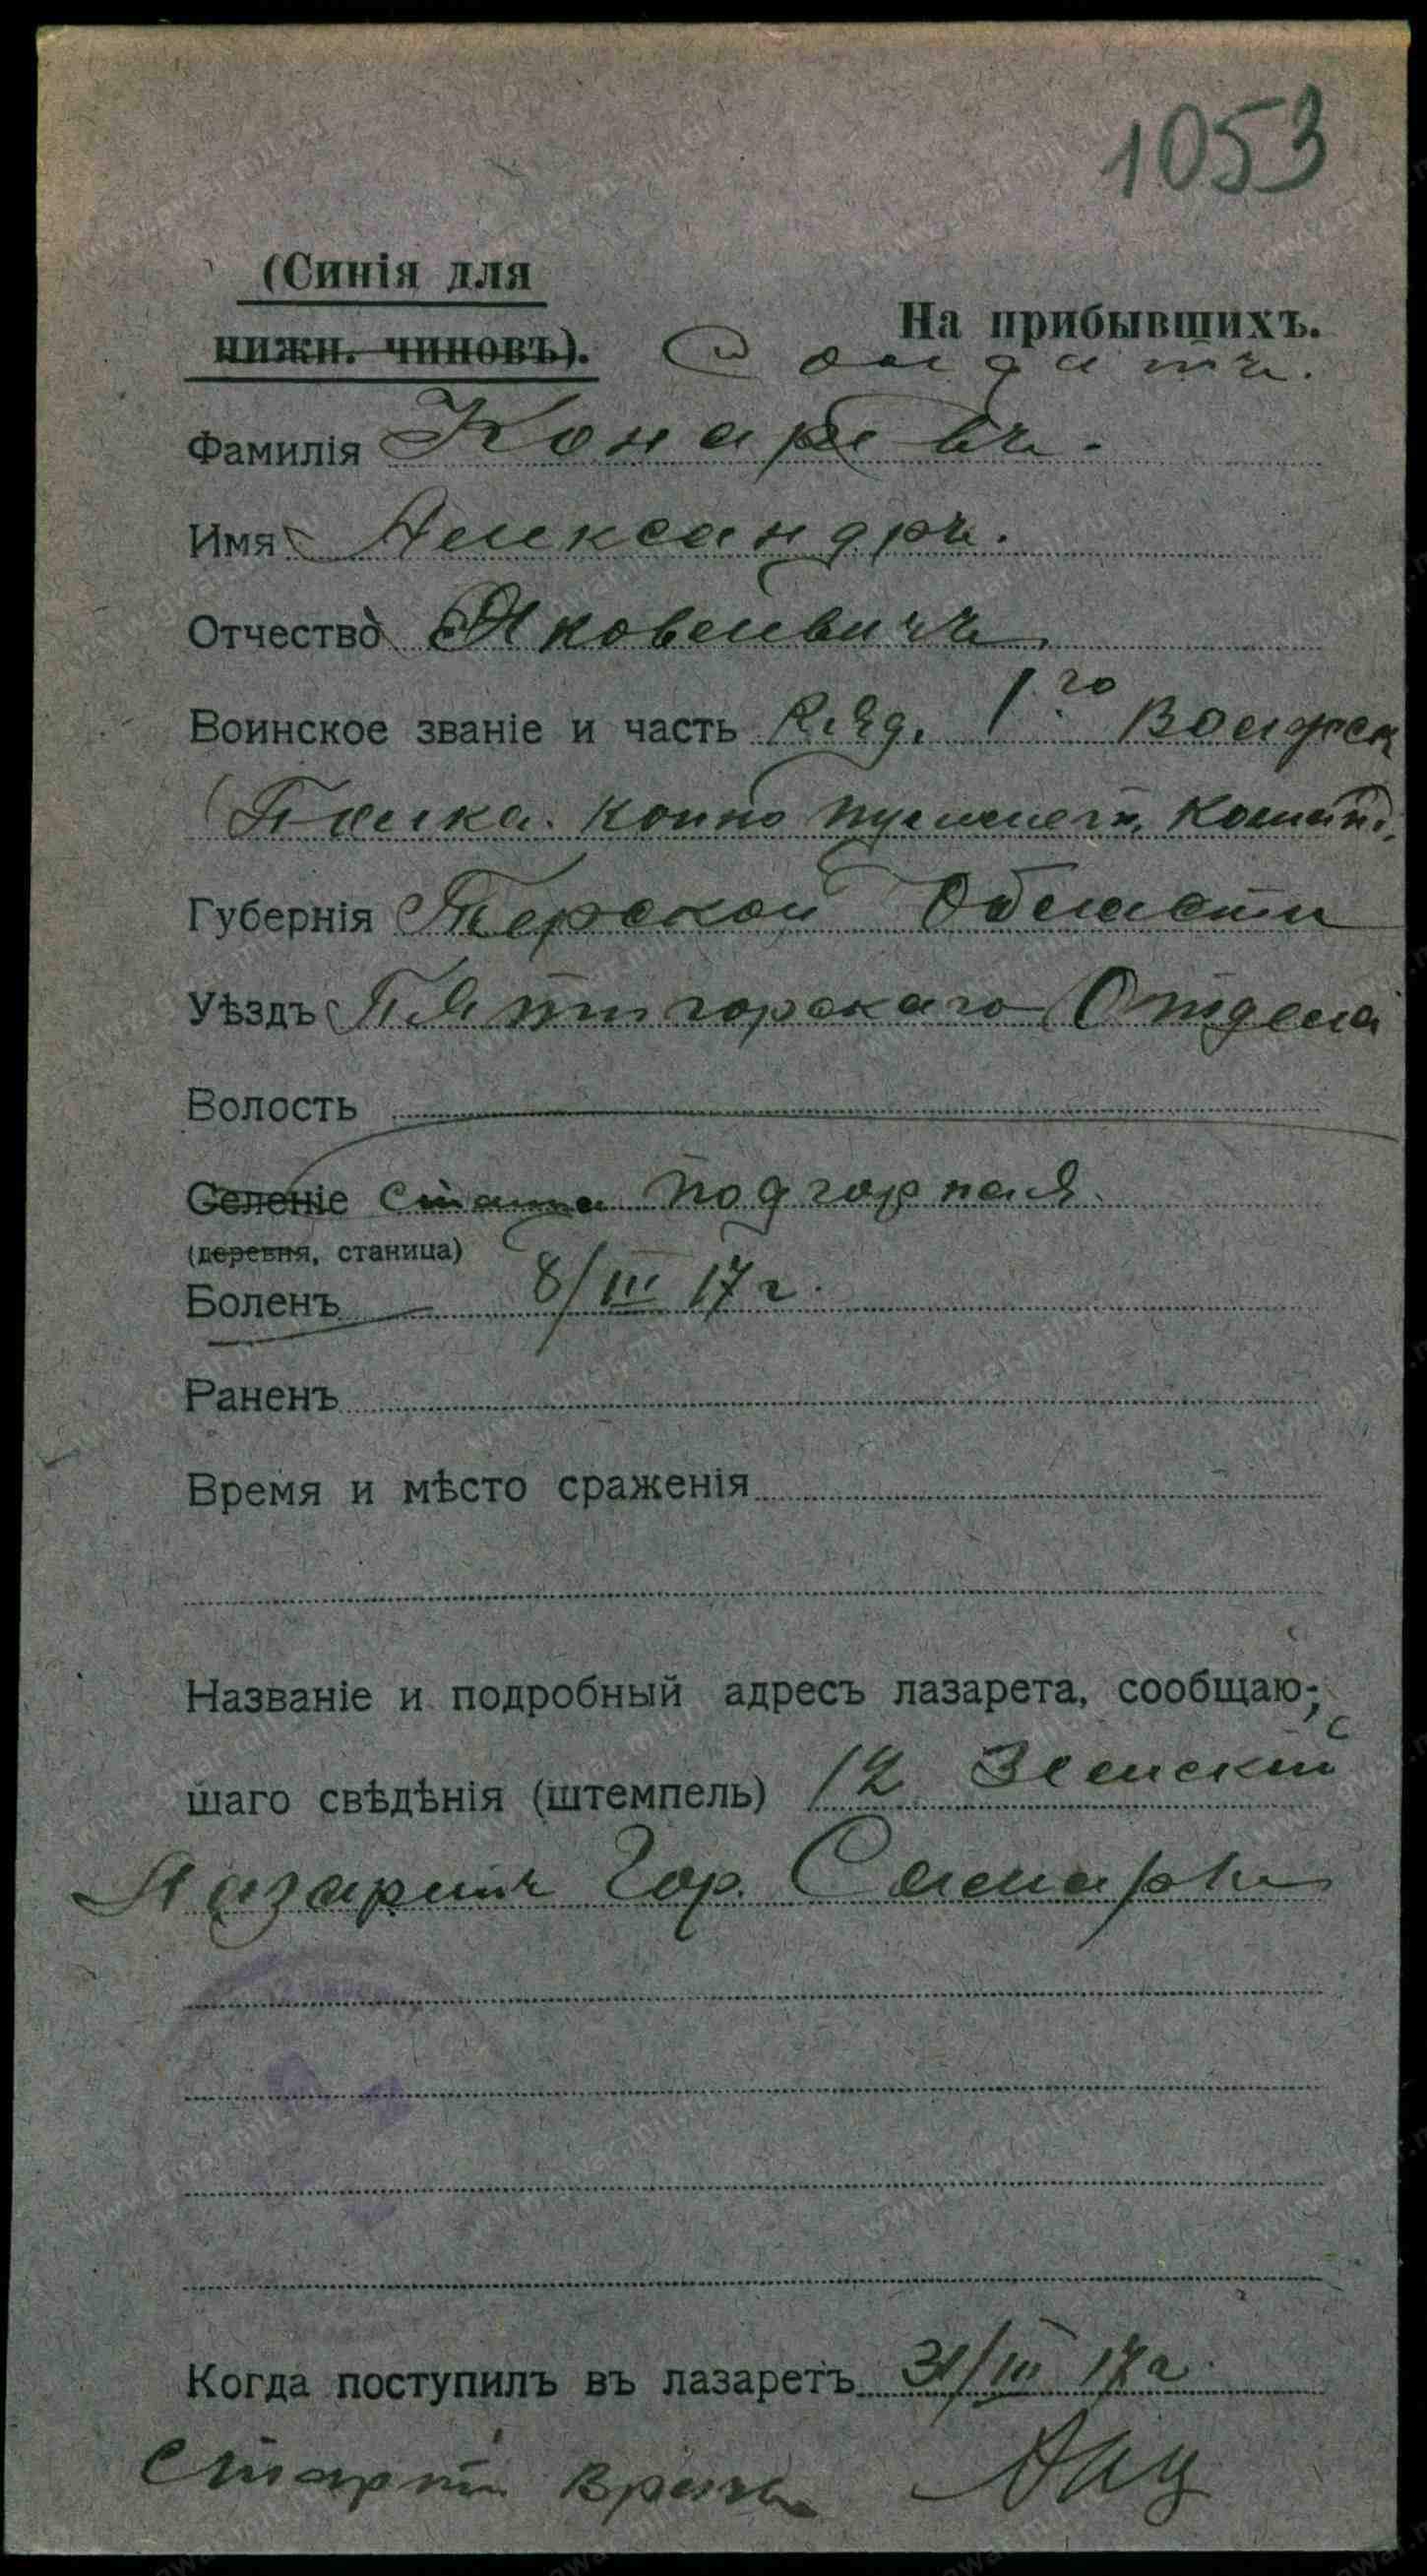 1053
(Синія для
нижн. чиновъ).
На прибывшихъ.
Солдатъ.
Фамилія Конаревъ.
Имя Александръ.
Отчество Яковлевичъ
Воинское званіе и часть Ряд. 1го Волжск
Полка. Конно пулеметн. Команд.
Губернія Терской Области
Уѣздъ Пятигорскаго Отдела
Волость
Селеніе Подгорная
(деревня, станица)
Боленъ 8/III 17 г.
Раненъ
Время и мѣсто сраженія
Названіе и подробный адресъ лазарета, сообщаю-
шаго свѣдѣнія (штемпель) 12 Земский
Лазаретъ Гор. Самары
Когда поступилъ въ лазаретъ 31/III 17 г.
Старш Врачъ